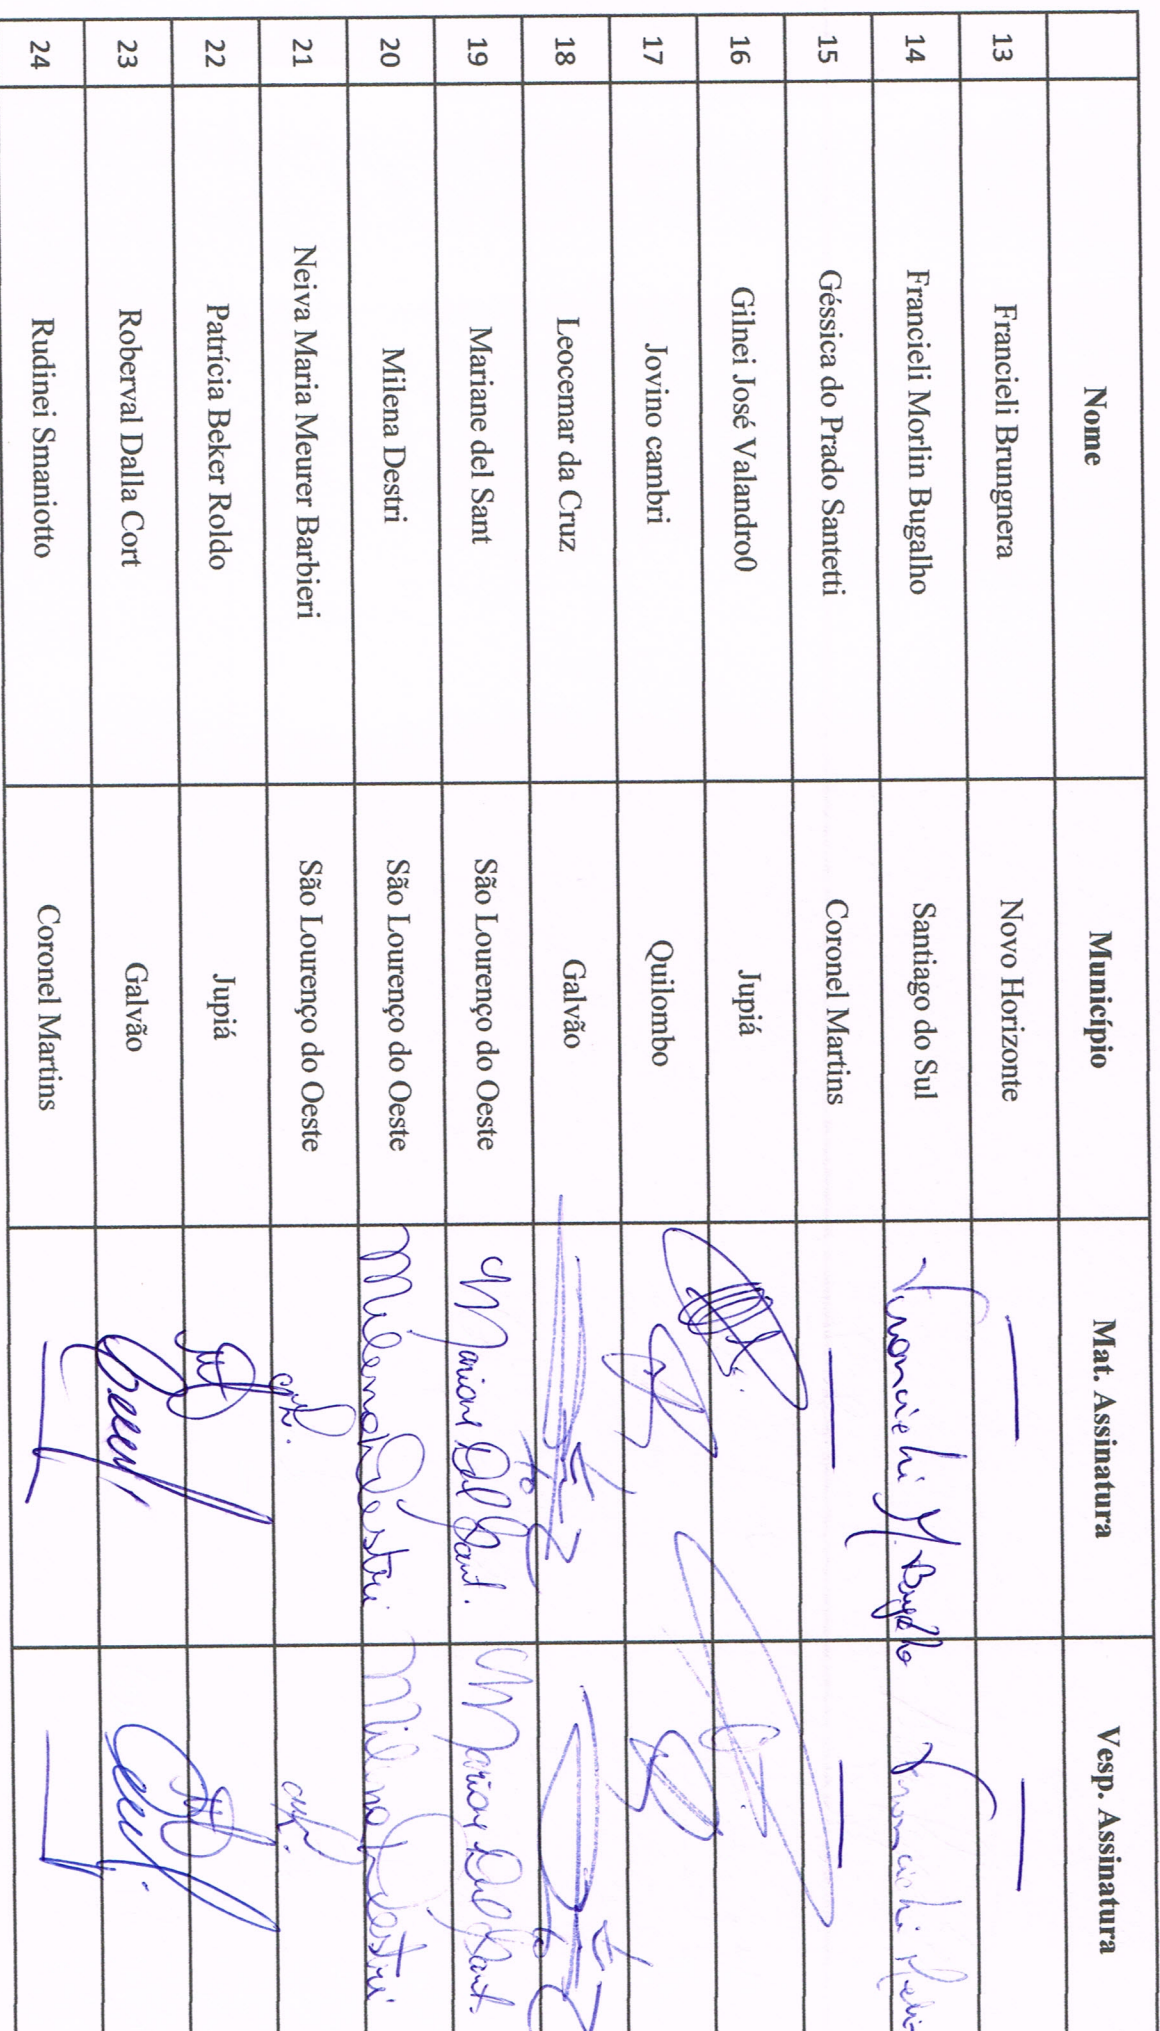 Nome Município Mat. Assinatura Vesp. Assinatura
13 Francieli Brungnera Novo Horizonte — —
14 Francieli Morlin Bugalho Santiago do Sul Francieli M. Bugalho Francieli
15 Géssica do Prado Santetti Coronel Martins — —
16 Gilnei José Valandro0 Jupiá
17 Jovino cambri Quilombo
18 Leocemar da Cruz Galvão
19 Mariane del Sant São Lourenço do Oeste Mariane Dal Sant. Mariane Dal Sant.
20 Milena Destri São Lourenço do Oeste Milena Destri Milena Destri
21 Neiva Maria Meurer Barbieri São Lourenço do Oeste
22 Patrícia Beker Roldo Jupiá
23 Roberval Dalla Cort Galvão
24 Rudinei Smaniotto Coronel Martins — —